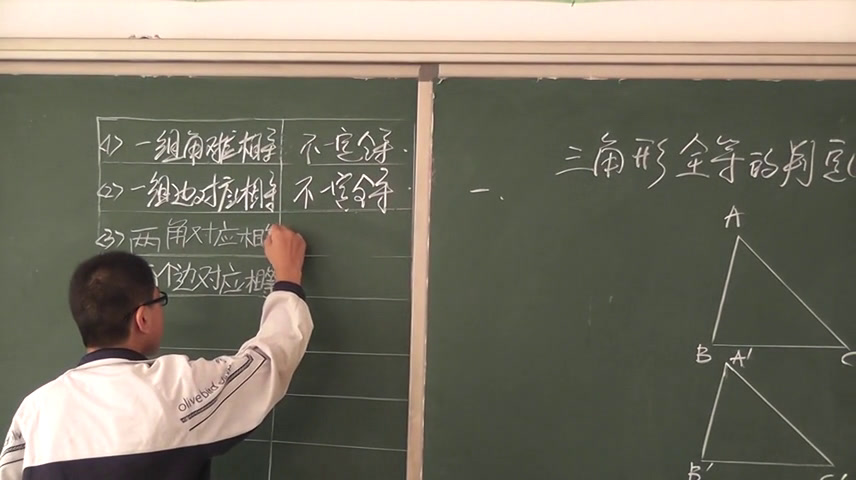 <1> 一组角对应相等 不一定全等.
<2> 一组边对应相等 不一定全等.
<3> 两角对应相等
个边对应相等
三角形全等的判定(
一.
A
B C
A'
B' C'
olivebird